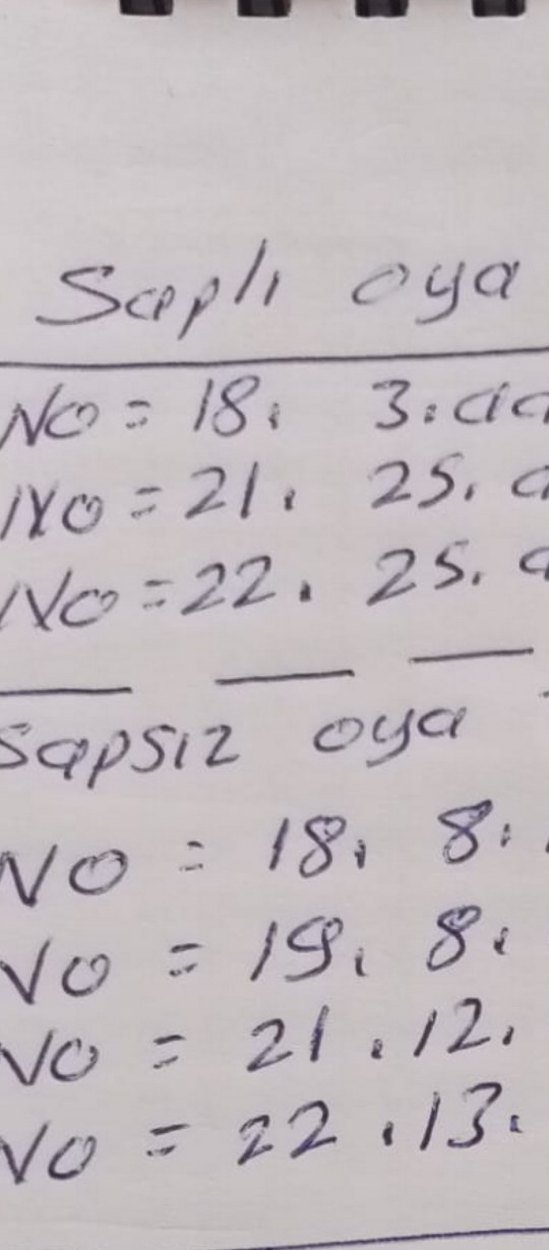 Saplı oya
No = 18. 3.
No = 21. 25.
No = 22. 25.
Sapsız oya
NO = 18. 8.
NO = 19. 8.
NO = 21. 12.
NO = 22. 13.